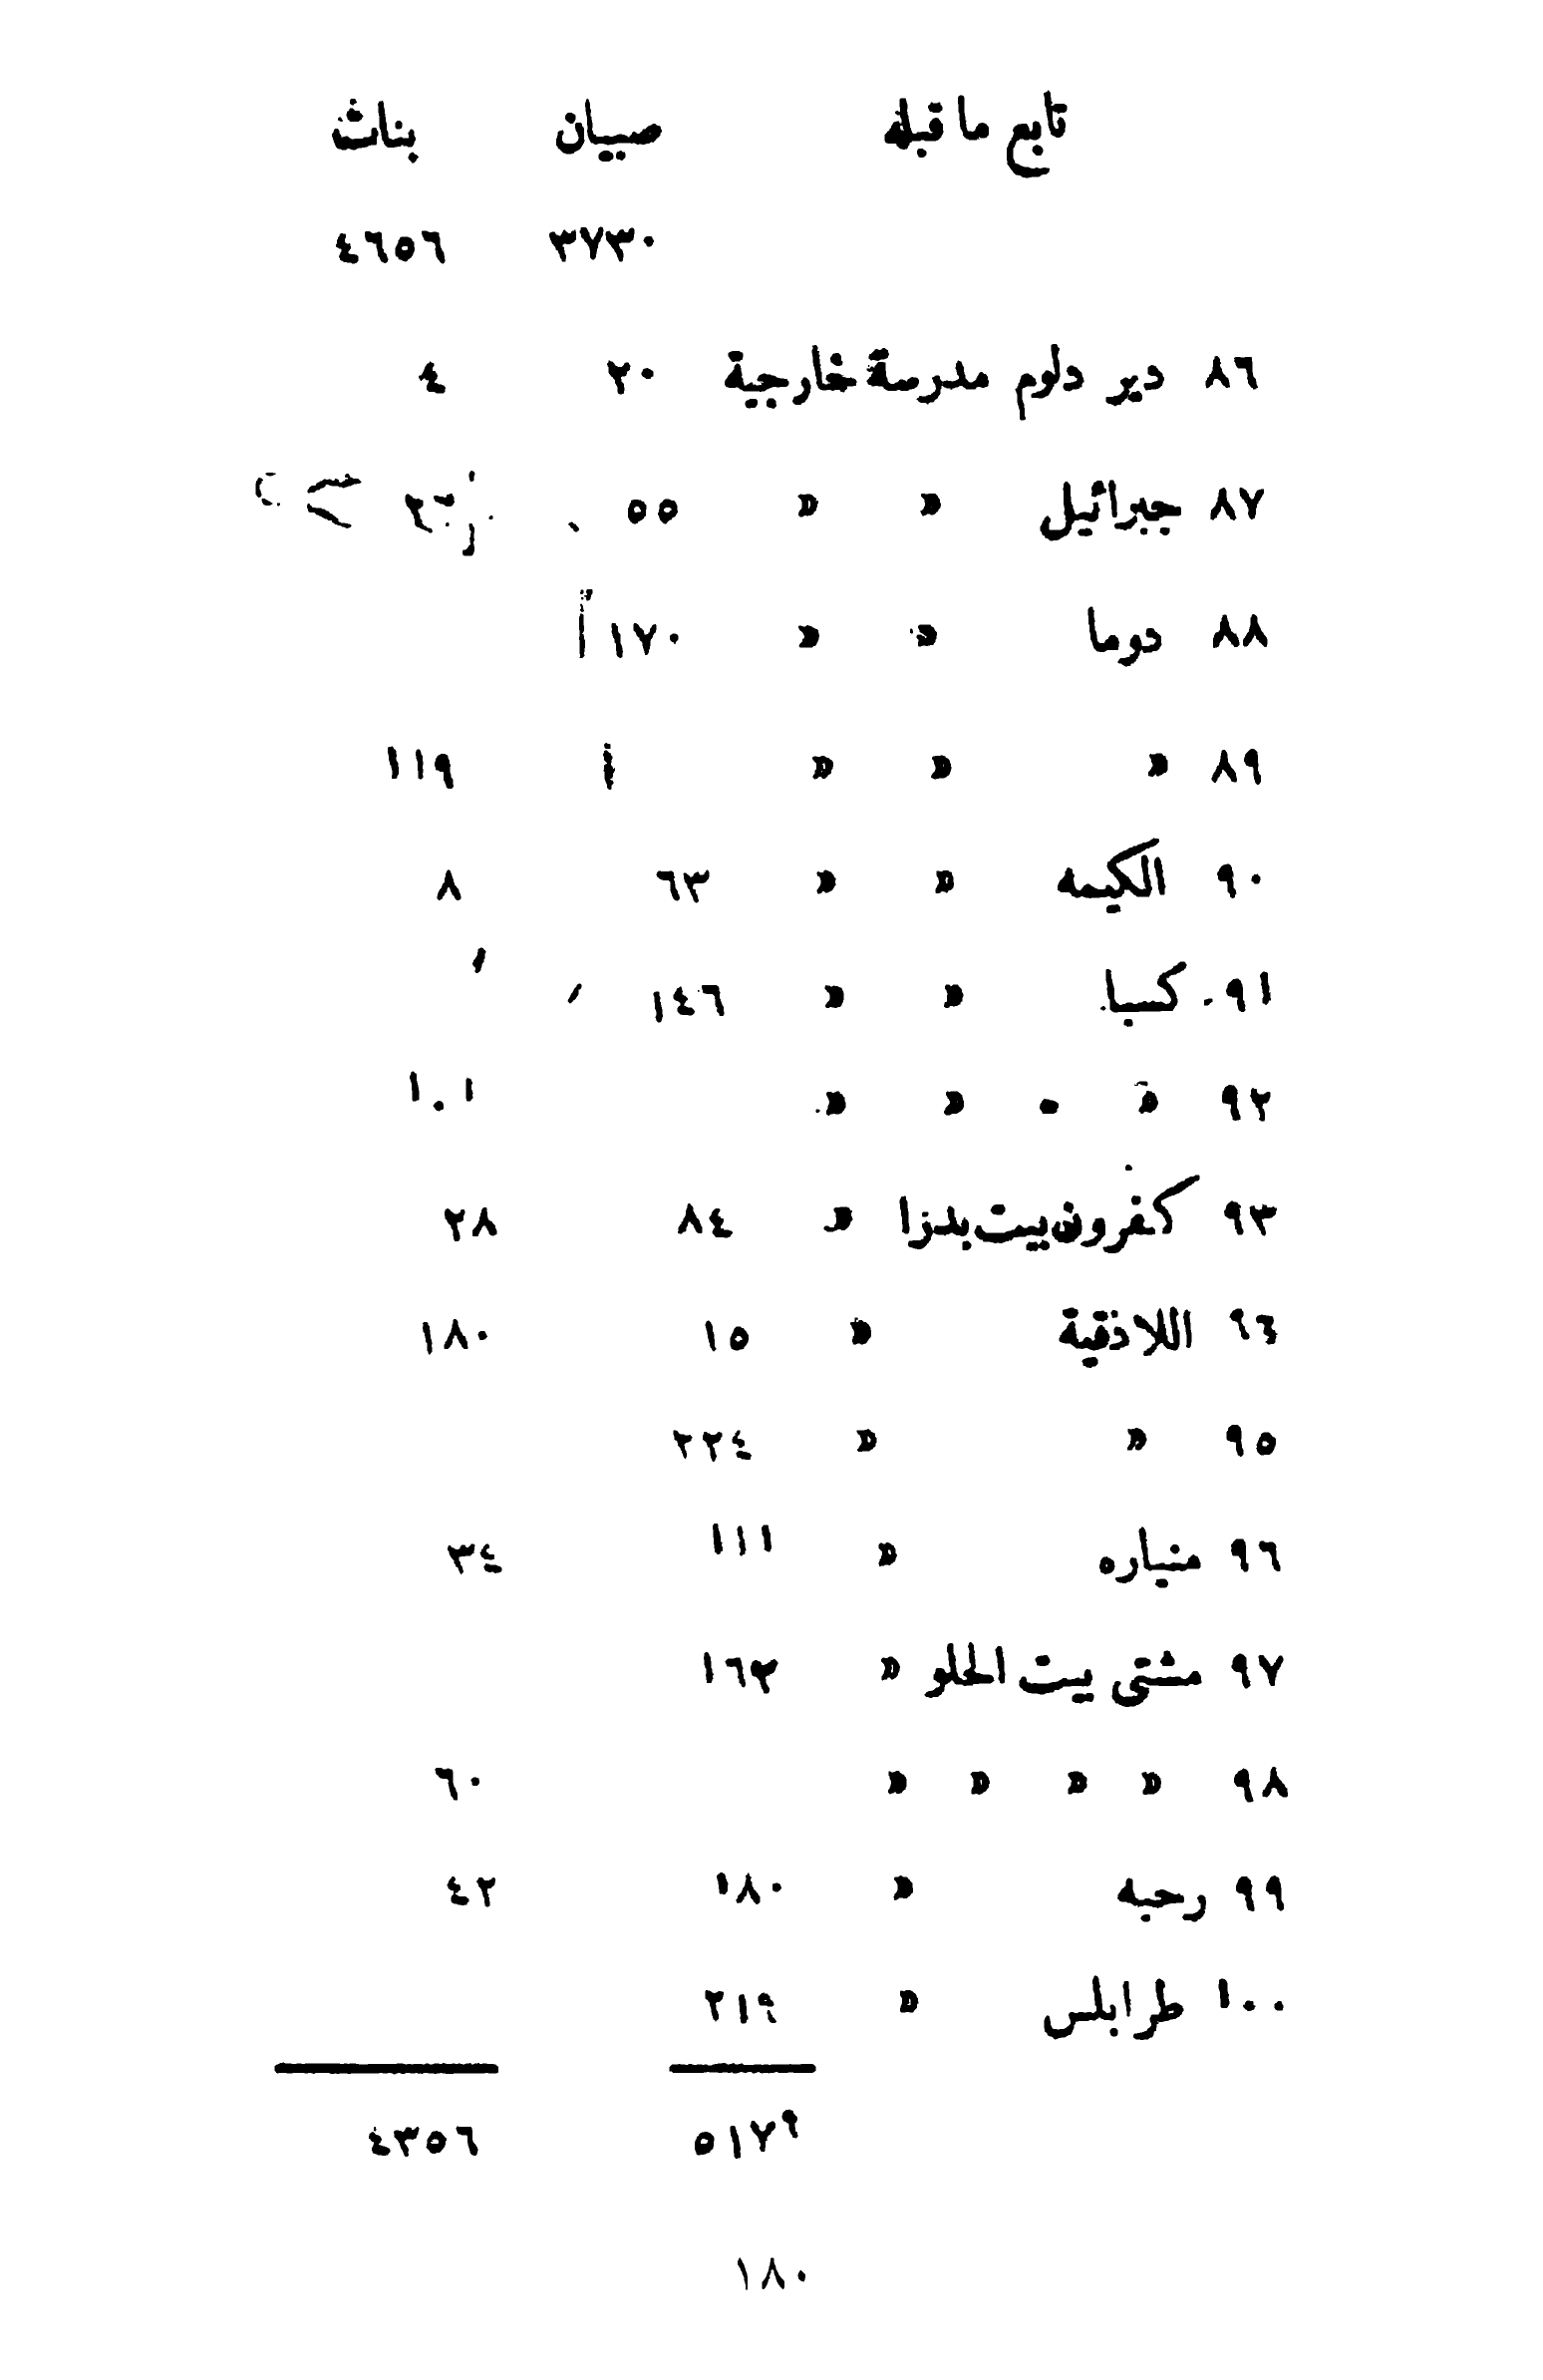 تابع ما قبله صبيان بنات
٣٧٣٠ ٤٦٥٦
٨٦ دير دلوم مدرسة خارجية ٢٠ ٤
٨٧ جبرائيل » » ٥٥
٨٨ دوما » » ١٧٠
٨٩ » » » ١١٩
٩٠ الكيمه » » ٦٣ ٨
٩١ كسبا » » ١٤٦
٩٢ » » » ١٠١
٩٣ كفرون بيت بدرا » ٨٤ ٢٨
٩٤ اللاذقية » ١٥ ١٨٠
٩٥ » » ٢٢٤
٩٦ منياره » ١١١ ٣٤
٩٧ مشتى بيت الحلو » ١٦٣
٩٨ » » » » ٦٠
٩٩ رحبه » ١٨٠ ٤٢
١٠٠ طرابلس » ٢١٩
٥١٧٩ ٤٣٥٦
١٨٠